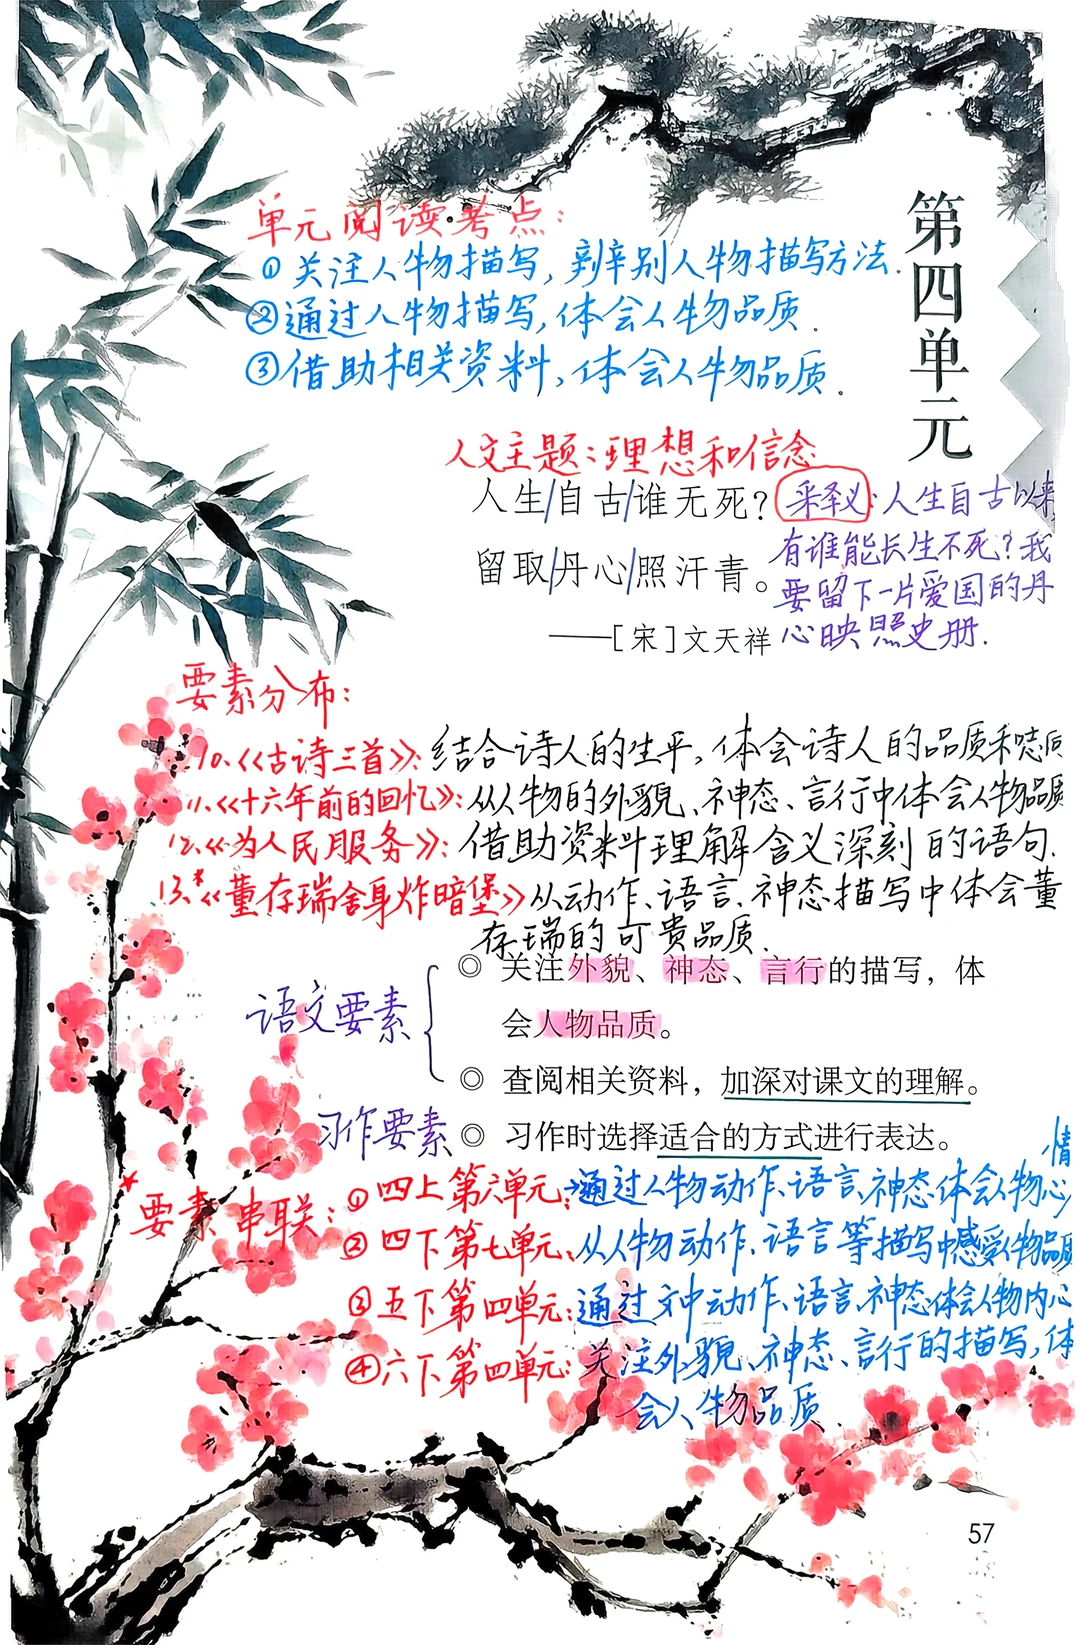 第四单元
单元阅读考点：
①关注人物描写，辨别人物描写方法.
②通过人物描写，体会人物品质.
③借助相关资料，体会人物品质.
人文主题：理想和信念
人生/自古/谁无死？
留取/丹心/照汗青。
——[宋]文天祥
释义：人生自古以来
有谁能长生不死？我
要留下一片爱国的丹
心映照史册.
要素分布：
10.《古诗三首》：结合诗人的生平，体会诗人的品质和志向
11.《十六年前的回忆》：从人物的外貌、神态、言行中体会人物品质
12.《为人民服务》：借助资料理解含义深刻的语句.
13.*《董存瑞舍身炸暗堡》从动作、语言、神态描写中体会董
存瑞的可贵品质.
语文要素
◎ 关注外貌、神态、言行的描写，体
会人物品质。
◎ 查阅相关资料，加深对课文的理解。
习作要素 ◎ 习作时选择适合的方式进行表达。
要素串联：①四上第六单元：通过人物动作、语言、神态体会人物心情
②四下第七单元、从人物动作、语言等描写中感受人物品质
③五下第四单元：通过文中动作、语言、神态体会人物内心
④六下第四单元：关注外貌、神态、言行的描写，体
会人物品质.
57